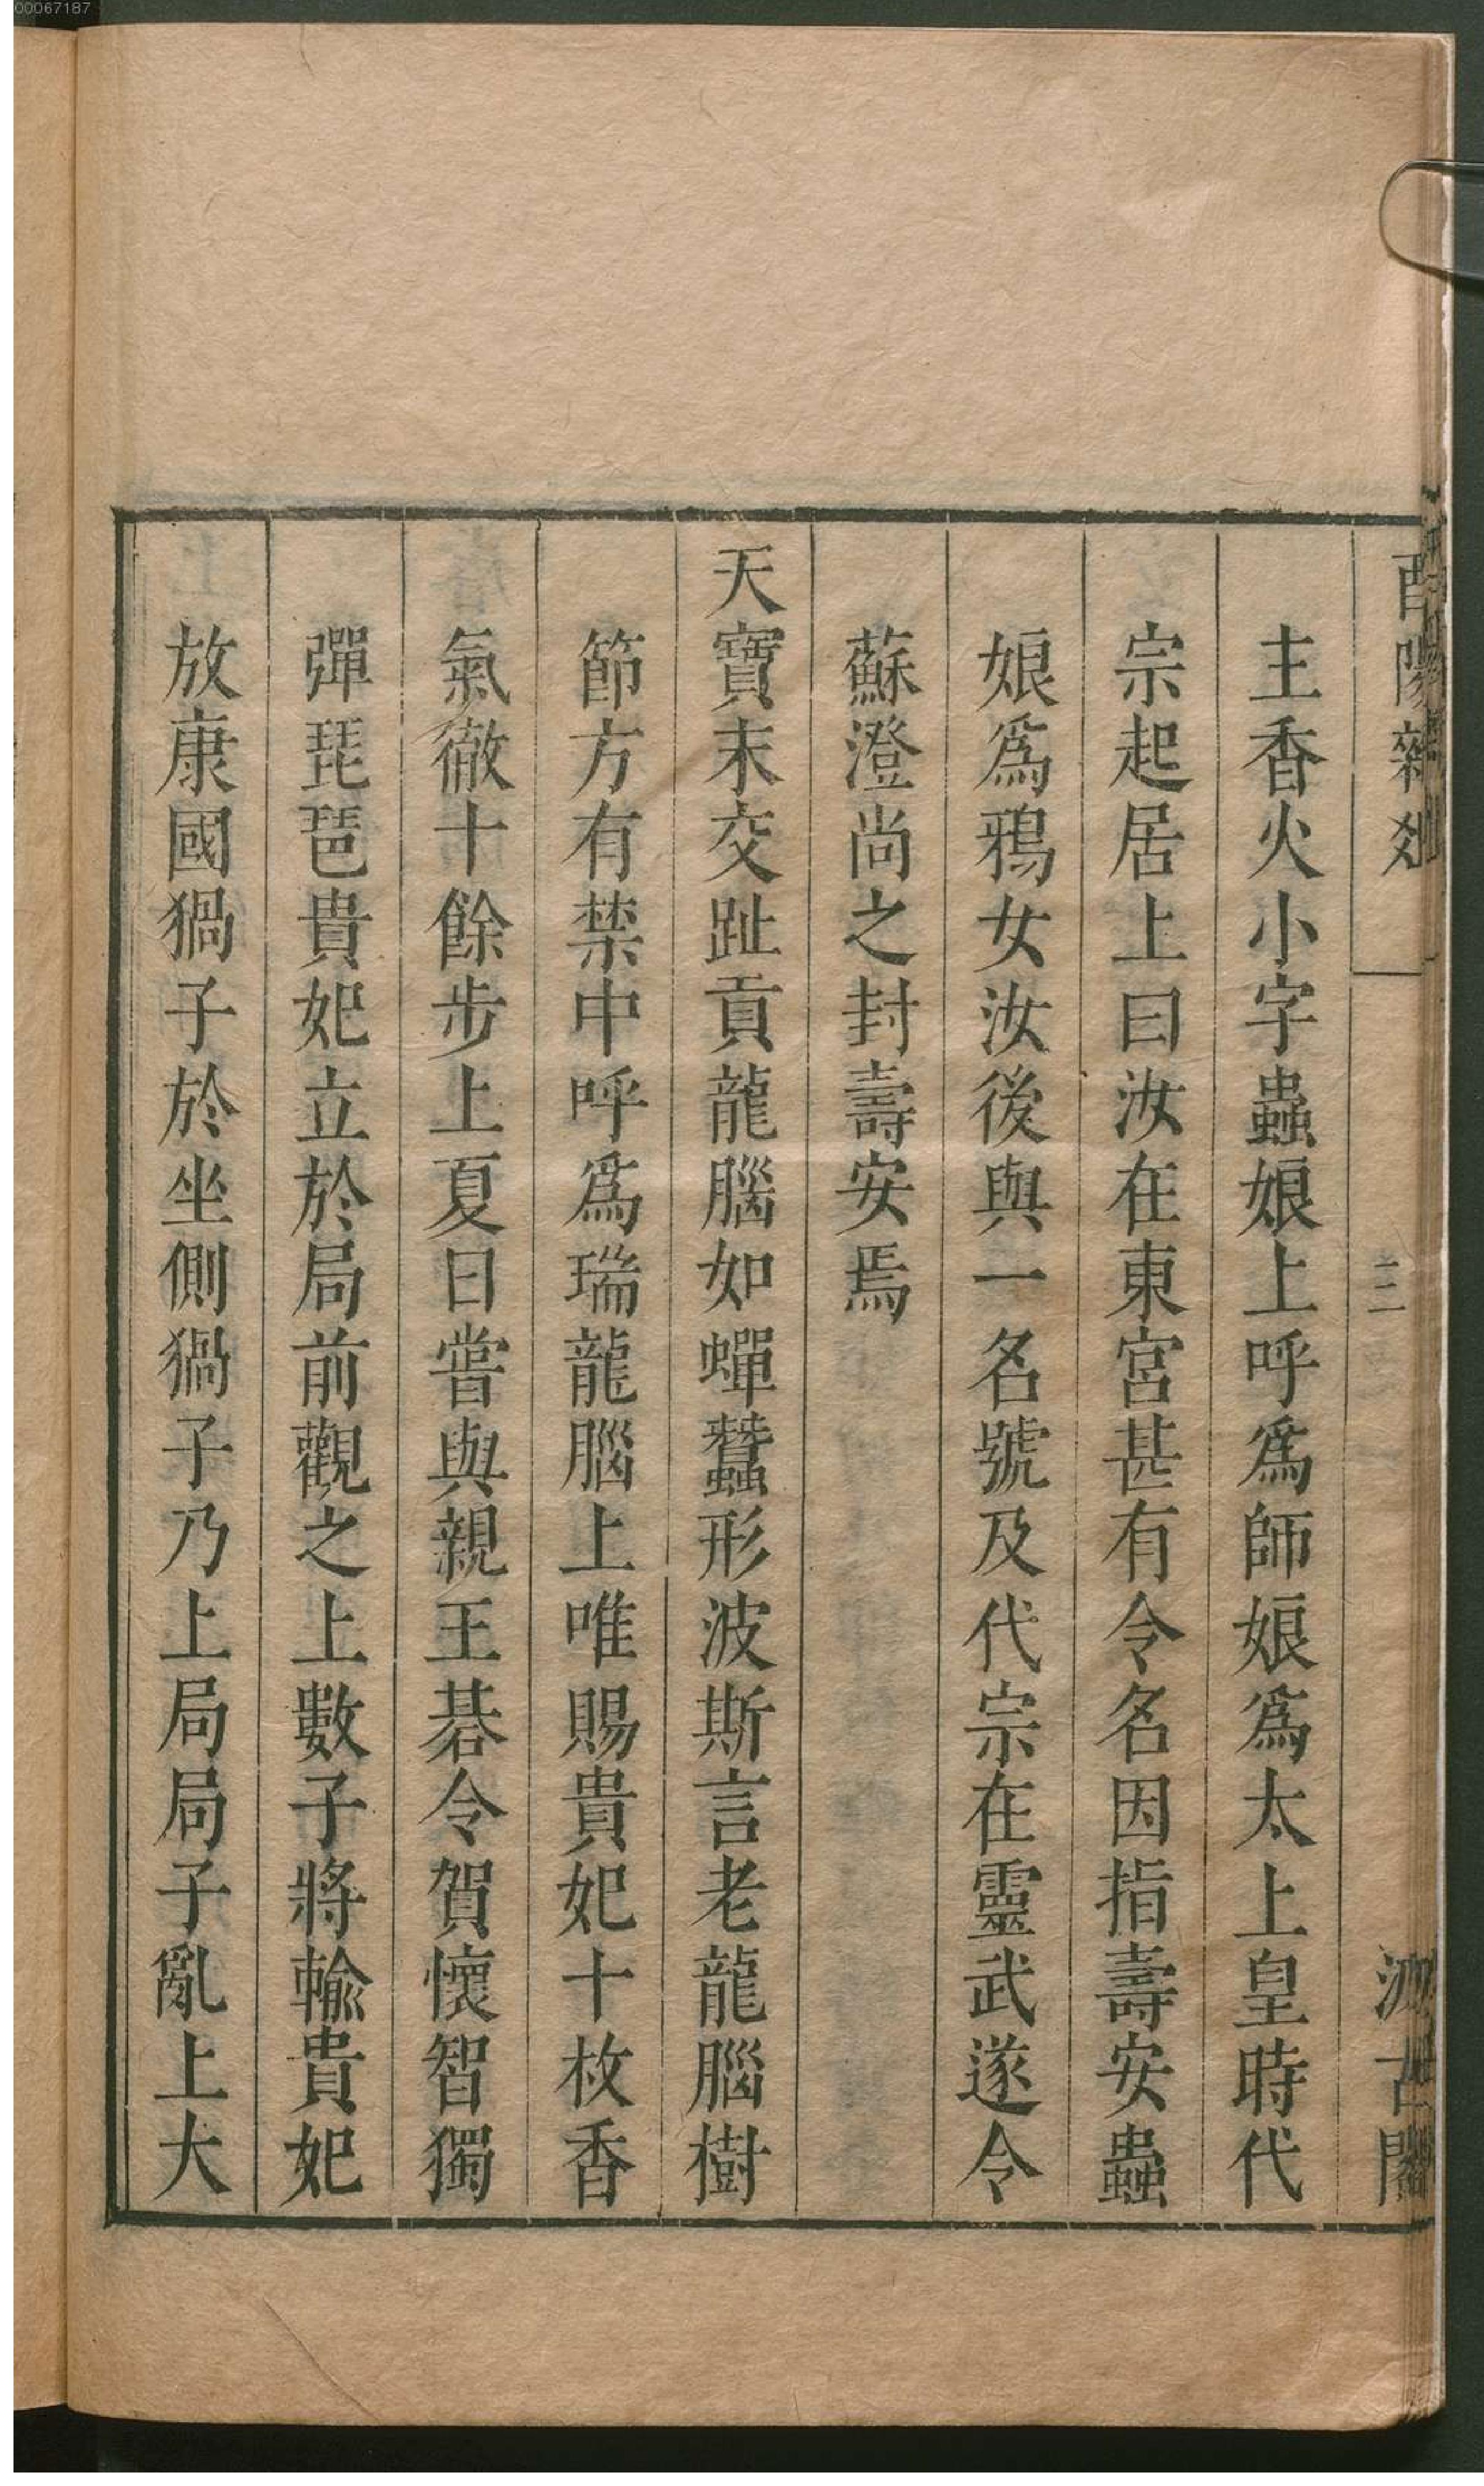 00067187
酉陽雜俎
三
汲古閣
主香火小字蟲娘上呼爲師娘爲太上皇時代
宗起居上曰汝在東宮甚有令名因指壽安蟲
娘爲鴉女汝後與一名號及代宗在靈武遂令
蘇澄尚之封壽安焉
天寶末交趾貢龍腦如蟬蠶形波斯言老龍腦樹
節方有禁中呼爲瑞龍腦上唯賜貴妃十枚香
氣徹十餘步上夏日嘗與親王碁令賀懷智獨
彈琵琶貴妃立於局前觀之上數子將輸貴妃
放康國猧子於坐側猧子乃上局局子亂上大